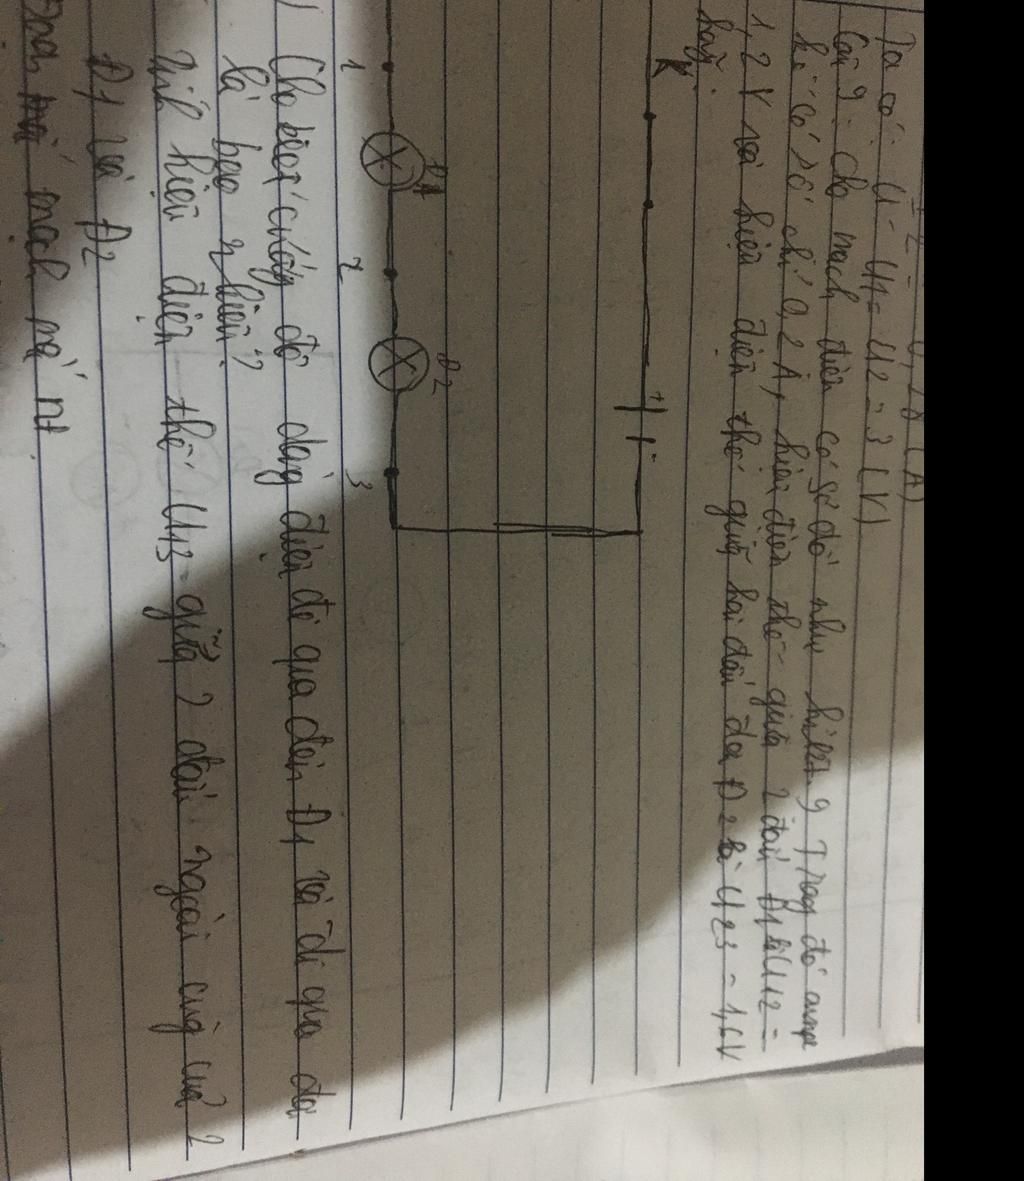 Ta có: U = U1 = U2 = 3 (V)
Câu 9: Cho mạch điện có sơ đồ như hình 9 Trong đó ampe
kế có số chỉ 0,2 A, hiệu điện thế giữa 2 đầu Đ1 là U12 =
1,2 V và hiệu điện thế giữa hai đầu đèn Đ2 là U23 = 1,6V
K
+ -
Đ1 Đ2
1 2 3
Cho biết cường độ dòng điện đi qua đèn Đ1 và đi qua đèn
là bao nhiêu?
hiệu điện thế U13 giữa 2 đầu ngoài cùng của 2
Đ1 và Đ2
mạch mắc nt